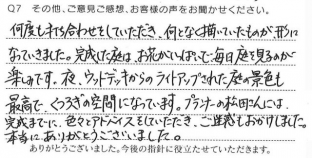 Q7 その他、ご意見ご感想、お客様の声をお聞かせください。
何度も打ち合わせをしていただき、何となく描いていたものが形に
なっていきました。完成した庭は、お花がいっぱいで毎日庭を見るのが
楽しみです。夜、ウッドデッキからのライトアップされた庭の景色も
最高で、くつろぎの空間になっています。プランナーの松田さんには、
完成までに、色々とアドバイスをしていただき、ご迷惑もおかけしました。
本当にありがとうございました。
ありがとうございました。今後の指針に役立たせていただきます。